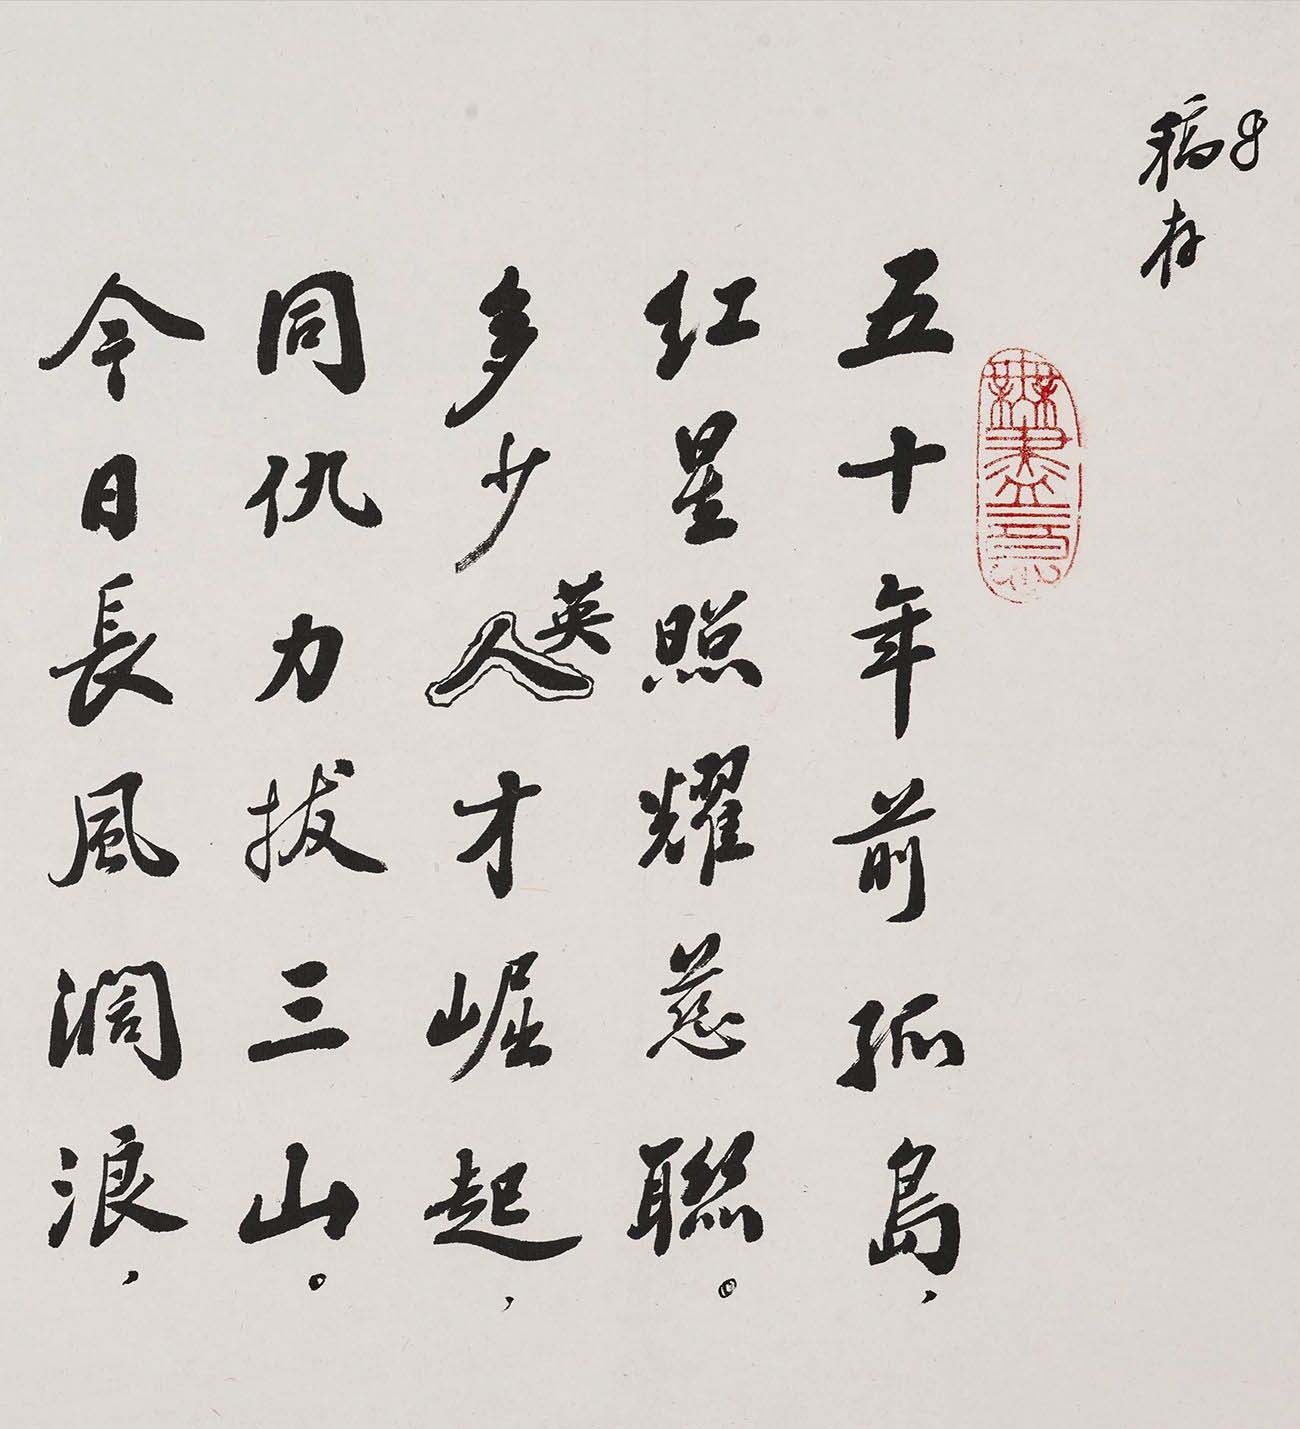 稿存
無盡意
五十年前孤島，
红星照耀慈聯。
多少人英才崛起，
同仇力拔三山。
今日長風濶浪，